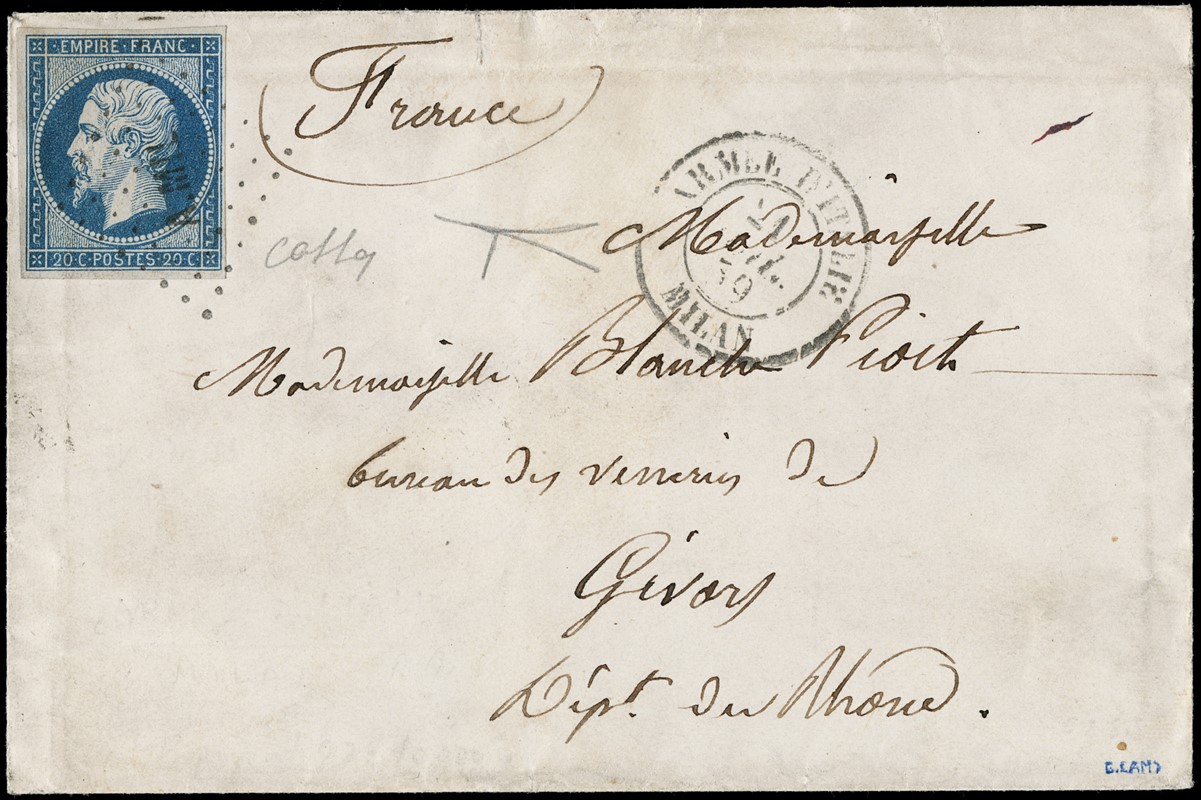 EMPIRE · FRANC ·
20 · C · POSTES · 20 · C ·
France
ARMEE D'ITALIE
21
59
MILAN
Mademoiselle
Mademoiselle Blanche
bureau des verreries de
Givors
Dépt. du Rhône.